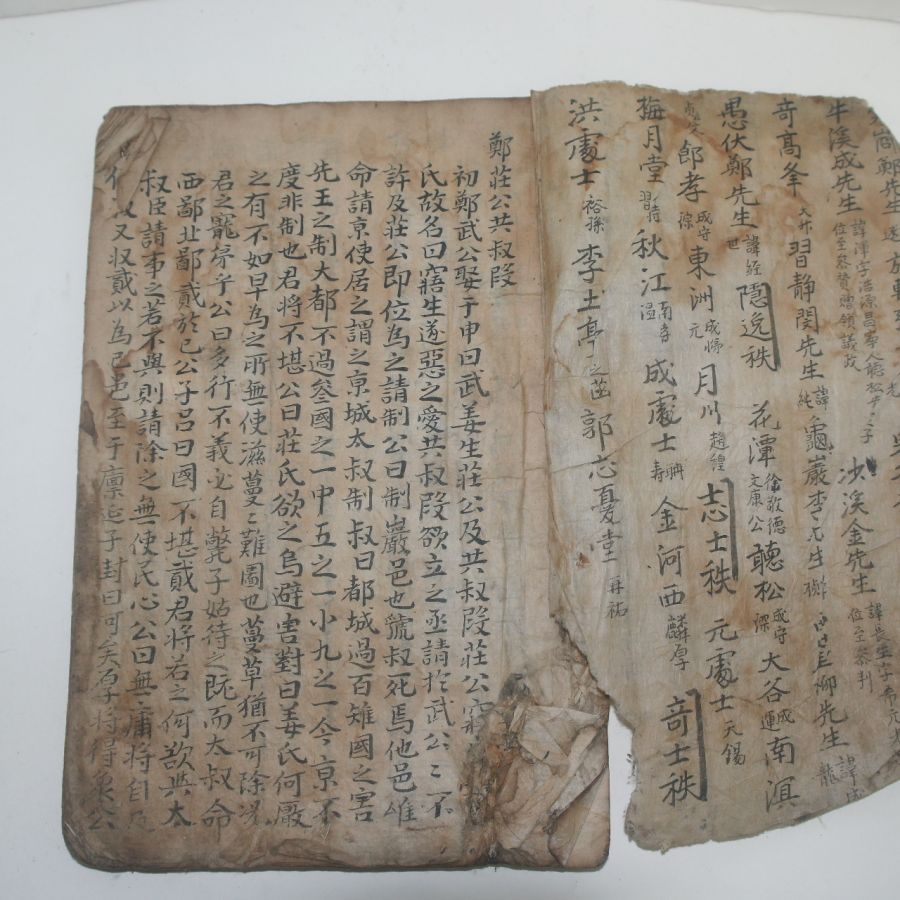 尚鄭先生
牛溪成先生 諱渾字浩源昌寧人聽松
位至參贊贈領議政 沙溪金先生 諱長生字希元
位至參判
奇高峯 大升 習静閔先生 諱
純 龜巖李先生 柳先生
愚伏鄭先生 諱經
世 隱逸秩 花潭 徐敬德
文康公 聽松 成守
琛 大谷 成
運 南溟
郎孝 成守
琮 東洲 成悌
元 月川 趙穆 志士秩 元處士 天錫
梅月堂 習
時 秋江 南孝
溫 成處士 聃
壽 金河西 麟厚 奇士秩
洪處士 裕孫 李土亭 之菡 郭忘憂堂 再祐
鄭莊公共叔段
初鄭武公娶于申曰武姜生莊公及共叔段莊公寤
氏故名曰寤生遂惡之愛共叔段欲立之亟請於武公〻不
許及莊公即位為之請制公曰制巖邑也虢叔死焉他邑唯
命請京使居之謂之京城太叔制叔曰都城過百雉國之害
先王之制大都不過參國之一中五之一小九之一今京不
度非制也君將不堪公曰莊氏欲之烏避害對曰姜氏何厭
之有不如早為之所無使滋蔓〻難圖也蔓草猶不可除况
君之寵弟乎公曰多行不義必自斃子姑待之旣而太叔命
西鄙北鄙貳於已公子呂曰國不堪貳君將若之何欲與太
叔臣請事之若不與則請除之無使民心公曰無庸將自及
叔又收貳以為已邑至于廪延子封曰可矣厚將得衆公